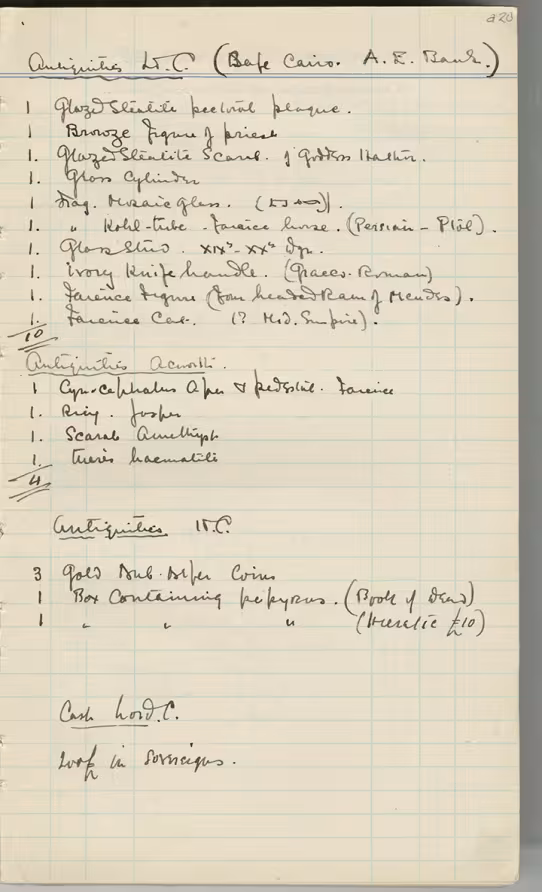 a20
Antiquities H.C. (Safe Cairo. A. E. Bank.)
1 Glazed Steatite pectoral plaque.
1 Bronze figure of priest
1. Glazed Steatite Scarab. of Goddess Hathor.
1. Glass Cylinder
1 Frag. Mosaic glass.
1. " Kohl-tube. Faience horse. (Persian - Ptol).
1. Glass Stud. XIXth-XXth Dyn.
1. Ivory Knife handle. (Graeco-Roman)
1. Faience Figure (four headed Ram of Mendes).
1. Faience Cat. (? Mid. Empire).
10
Antiquities Acworth.
1 Cynocephalus Ape & pedestal. Faience
1. Ring. Jasper
1. Scarab Amethyst
1. Tueris haematite
4
Antiquities H.C.
3 Gold Coins
1 Box Containing papyrus. (Book of Dead)
1 " " " (Hieratic £10)
Cash Lord. C.
in Sovereigns.